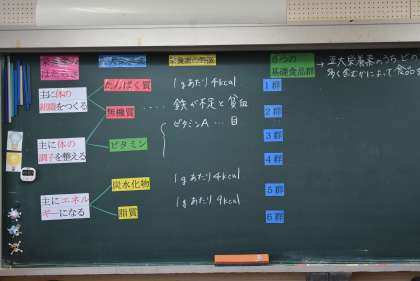 たんぱく質
1gあたり4kcal
6つの
基礎食品群
→ 五大栄養素のうちどの
多く含むかによって食品を
主に体の
組織をつくる
無機質
‥‥ 鉄が不足と貧血
ビタミンA … 目
主に体の
調子を整える
ビタミン
主にエネル
ギーになる
炭水化物
1gあたり4kcal
脂質
1gあたり9kcal
1群
2群
3群
4群
5群
6群